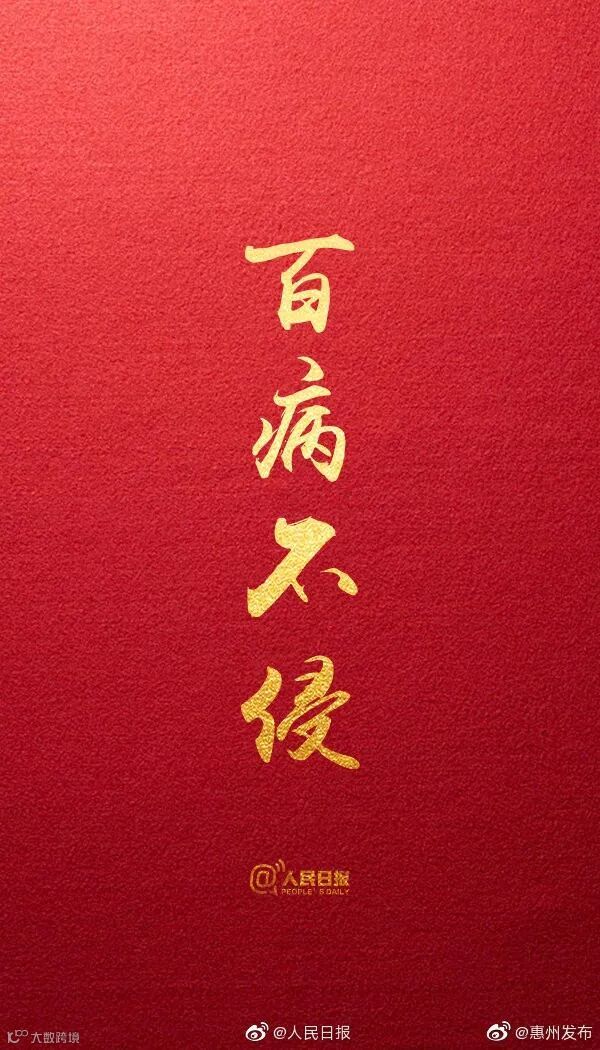 百病不侵
@人民日报
PEOPLE'S DAILY
大数跨境
@人民日报
@惠州发布